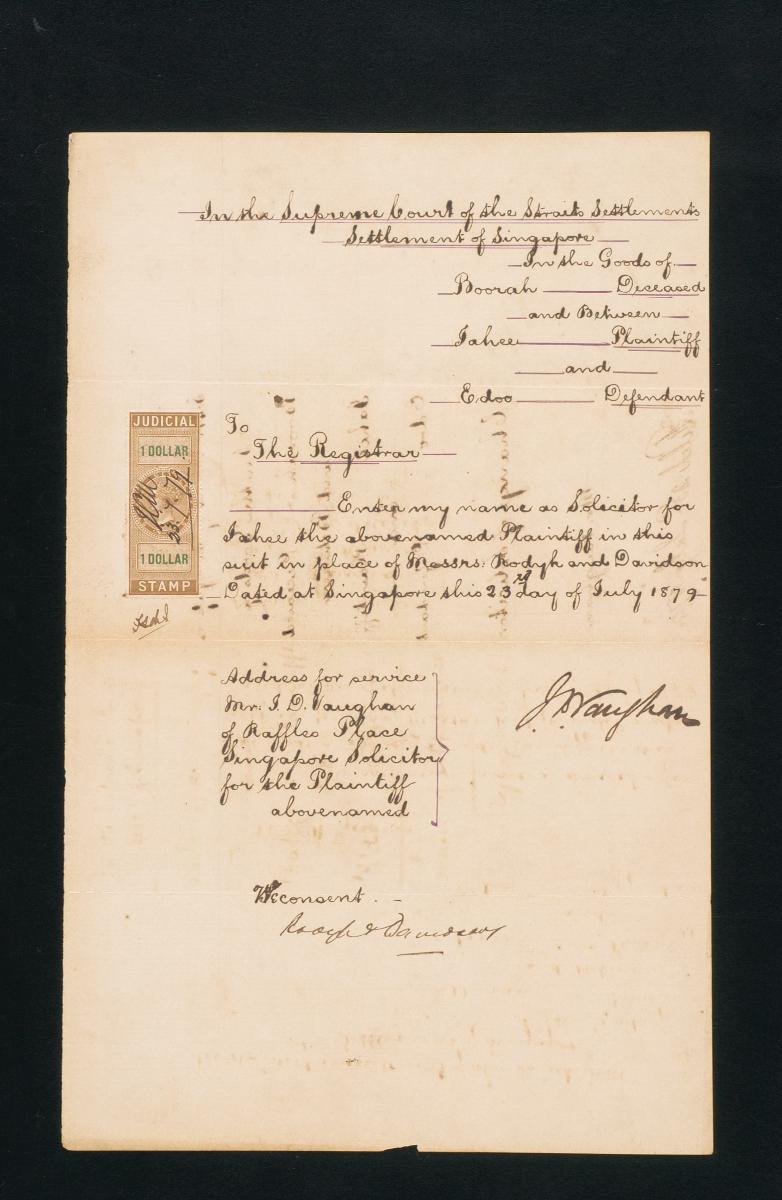 In the Supreme Court of the Straits Settlements
Settlement of Singapore
In the Goods of
Boorah Deceased
and Between
Jahee Plaintiff
and
Edoo Defendant
To
The Registrar
JUDICIAL
1 DOLLAR
23.7.79
1 DOLLAR
STAMP
Enter my name as Solicitor for
Jahee the abovenamed Plaintiff in this
suit in place of Messrs: Rodyk and Davidson
Dated at Singapore this 23rd day of July 1879
Address for service
Mr: J. D. Vaughan
of Raffles Place
Singapore Solicitor
for the Plaintiff
abovenamed
J. D. Vaughan
We consent.
Rodyk & Davidson